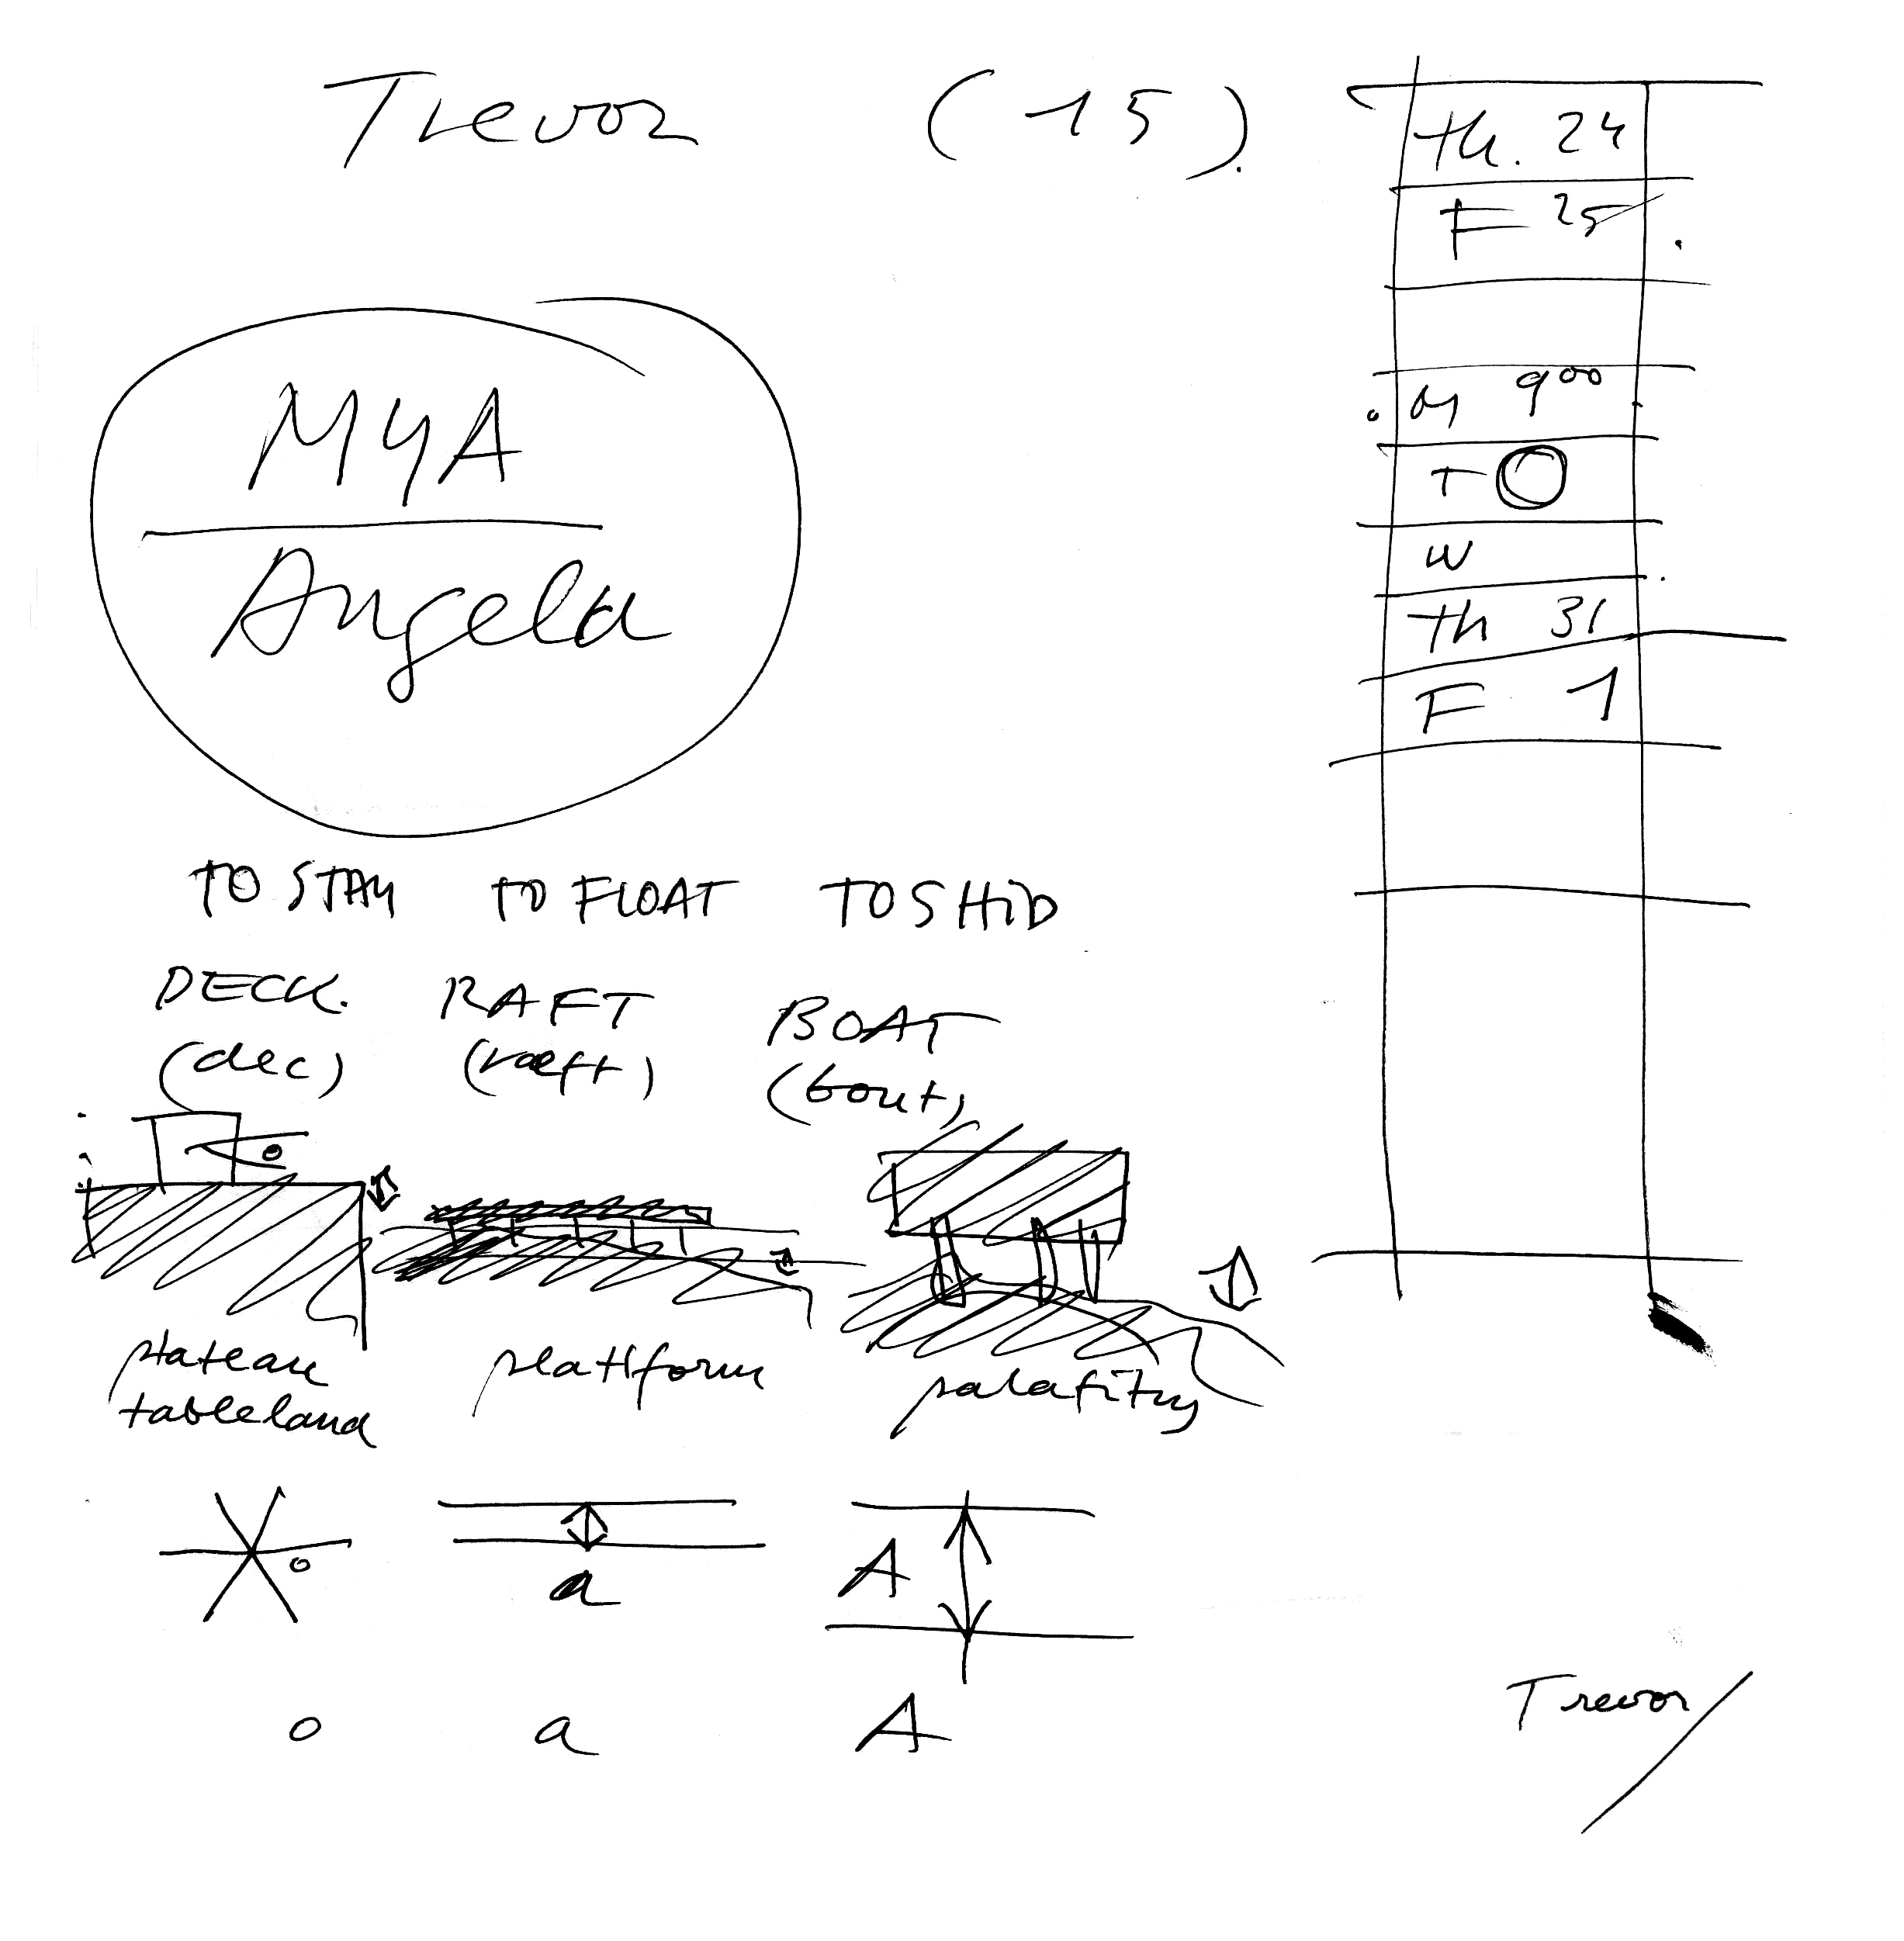 Trevor (15)
MYA
Angela
th. 24
F 25
M 9 00
T
W
th 31
F 1
TO STAY TO FLOAT TO SHID
DECK. RAFT BOAT
(dec) (raeft) (bout)
plateau platform palafity
tableland
o a A
o a A
Trevor